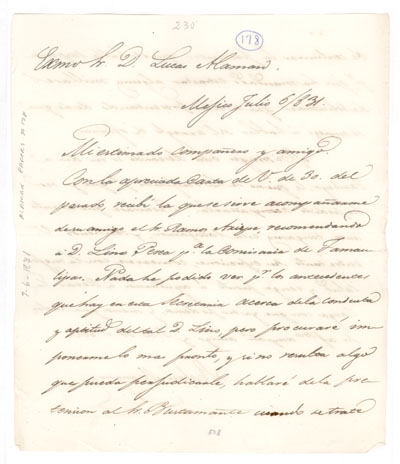 230
178
Exmo Sr. D. Lucas Alaman.
Mejico Julio 6/831.
Mi estimado compañero y amigo
Con la apreciada Carta de V. de 30. del
pasado, recibí la que se sirve acompañarme
de su amigo el Sr. Ramos Arizpe, recomendando
á D. Lino Perea pª la Comisaria de Tamau
lipas. Nada he podido ver pr los antecedentes
que hay en esta Secretaria acerca de la conducta
y aptitud del tal D. Lino, pero procuraré im
ponerme lo mas pronto, y si no resulta algo
que pueda perjudicarle, hablaré de la pre
tension al Sr. Bustamante cuando se trate
ALAMAN PAPERS # 178
7-6-1831